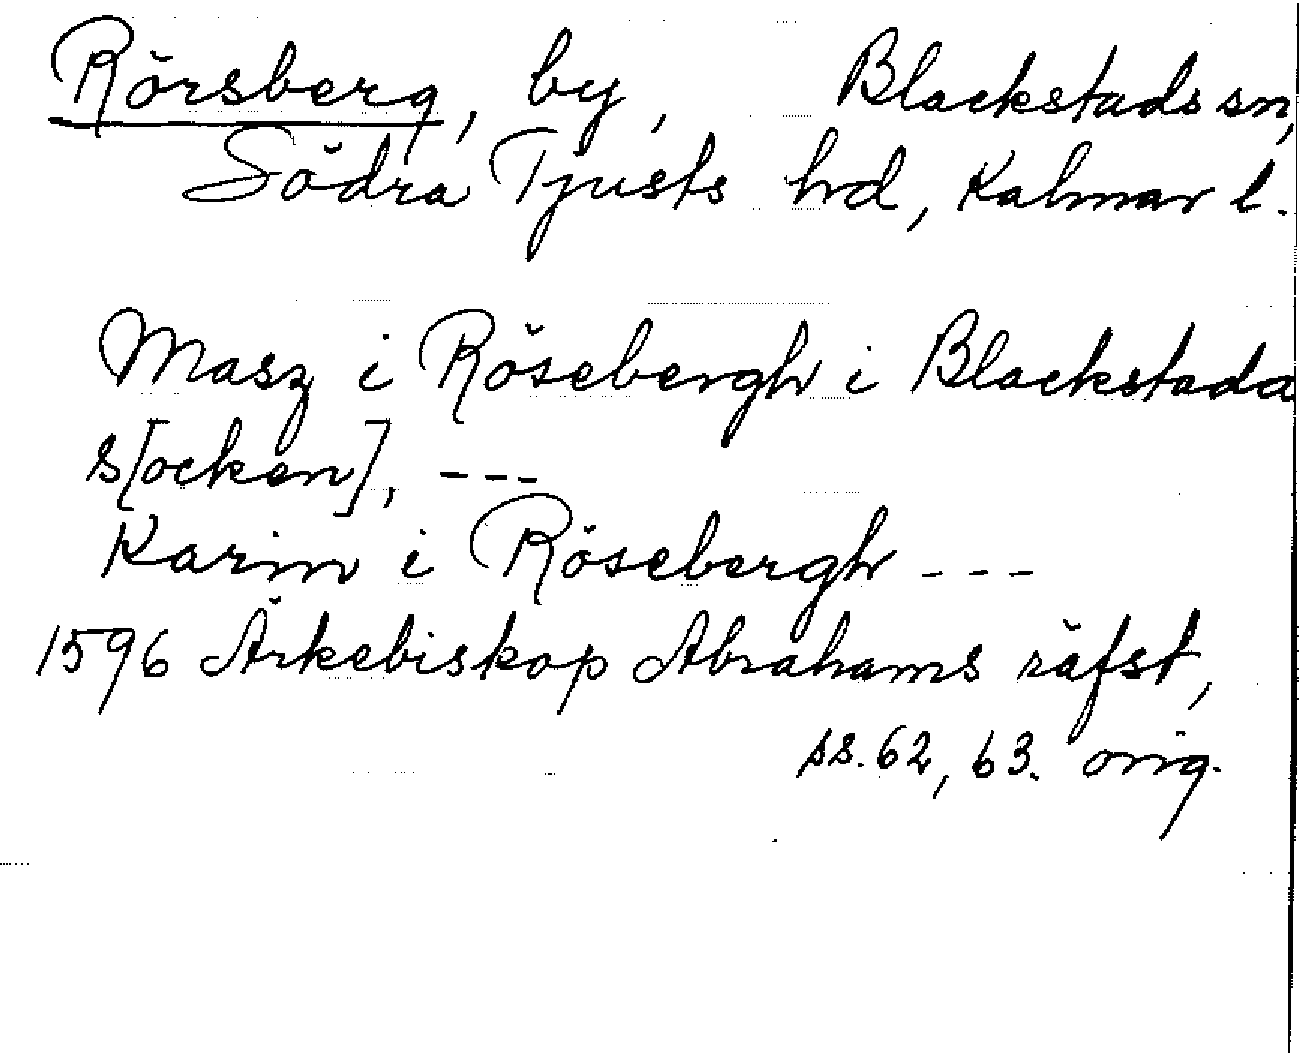 Rörsberg, by, Blackstads sn,
Södra Tjusts hd, Kalmar l.
Masz i Rösebergh i Blackstada
s[ocken], ---
Karin i Rösebergh ---
1596 Ärkebiskop Abrahams räfst,
ss. 62, 63. orig.